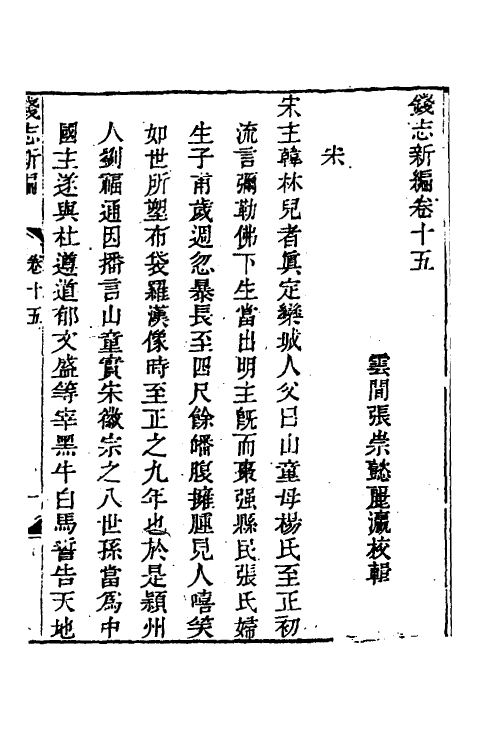 錢志新編卷十五
雲間張崇懿麗瀛校輯
宋
宋主韓林兒者眞定欒城人父曰山童母楊氏至正初
流言彌勒佛下生當出明主旣而棗强縣民張氏婦
生子甫歲週忽暴長至四尺餘皤腹擁腫見人嘻笑
如世所塑布袋羅漢像時至正之九年也於是潁州
人劉福通因播言山童實宋徽宗之八世孫當爲中
國主遂與杜遵道郁文盛等宰黑牛白馬誓告天地
錢志新編
卷十五
一